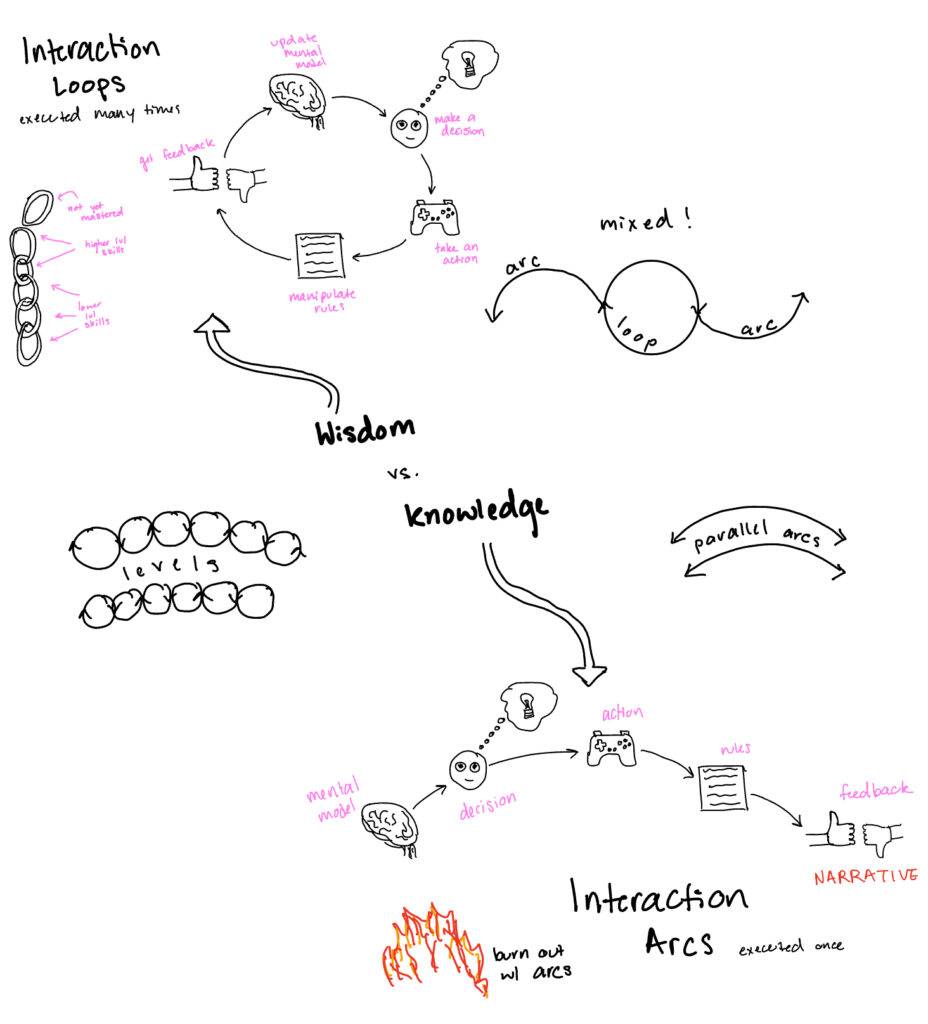 Interaction
Loops
executed many times
update
mental
model
make a
decision
get feedback
take an
action
manipulate
rules
not yet
mastered
higher lvl
skills
lower
lvl
skills
mixed!
arc
loop
arc
Wisdom
vs.
Knowledge
levels
parallel arcs
mental
model
decision
action
rules
feedback
NARRATIVE
Interaction
Arcs executed once
burn out
w/ arcs